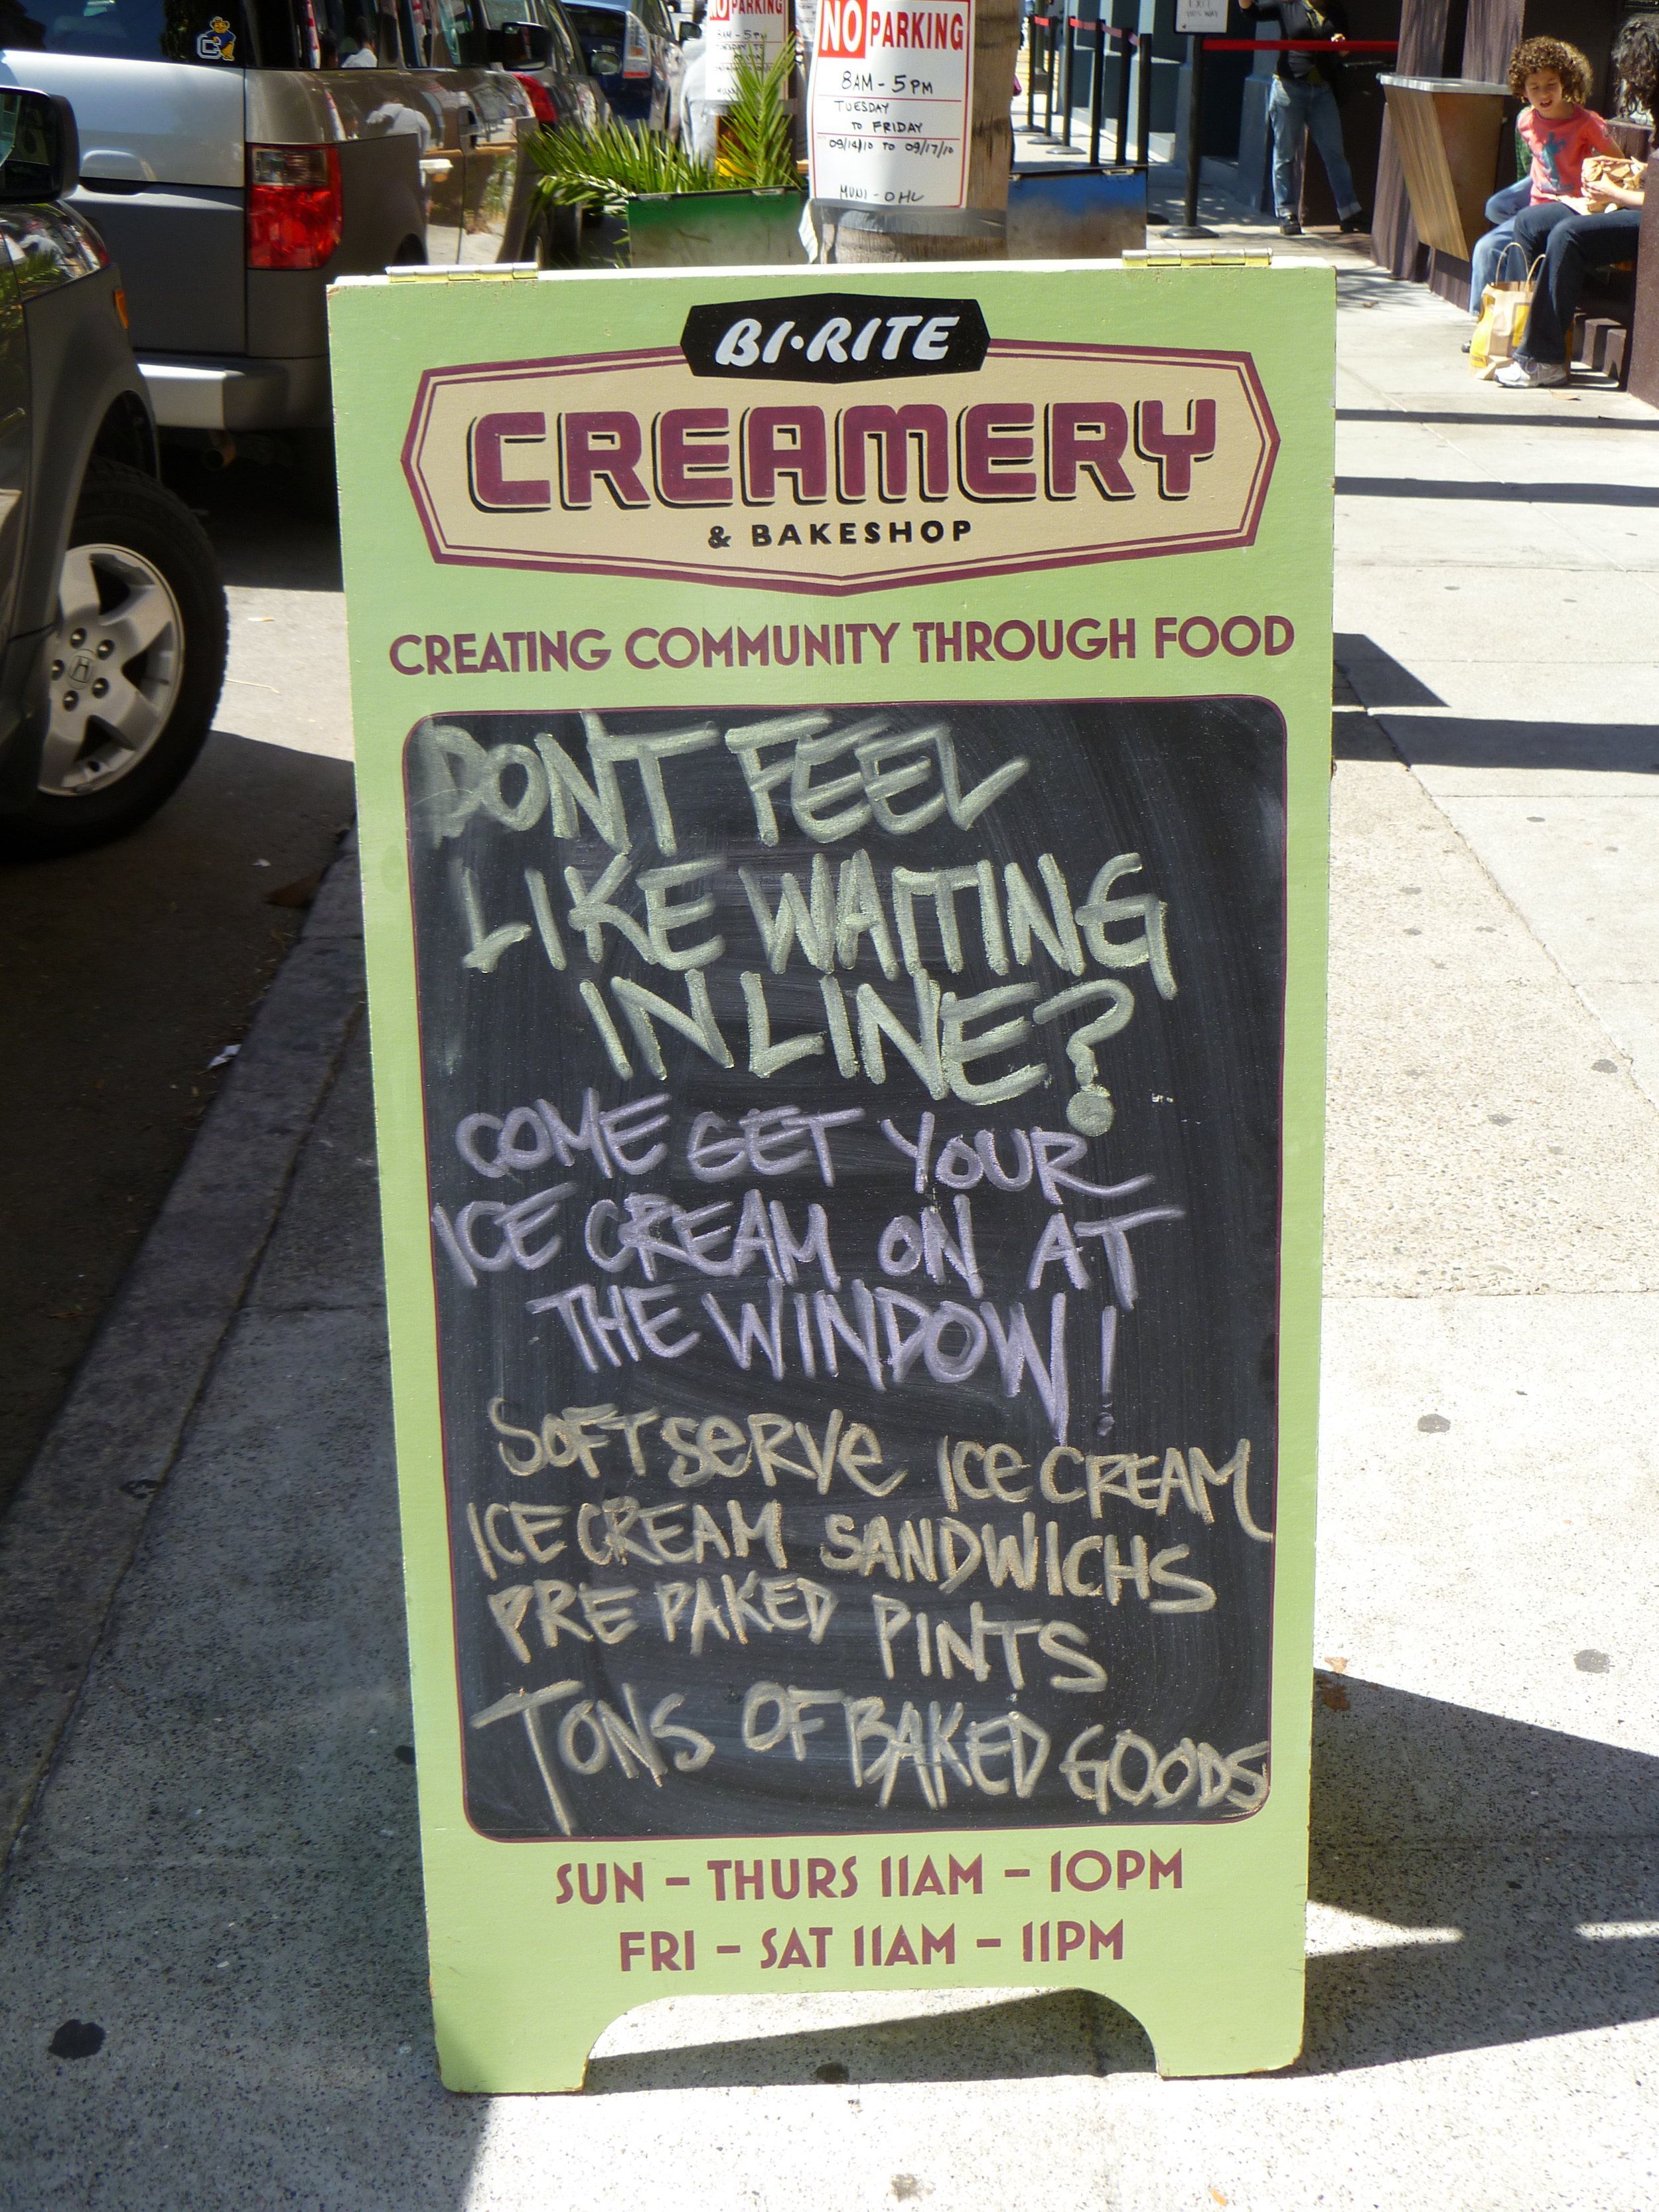 NO PARKING
8AM - 5PM
TUESDAY
TO FRIDAY
09/14/10 TO 09/17/10
MUNI - OHL
BI-RITE
CREAMERY
& BAKESHOP
CREATING COMMUNITY THROUGH FOOD
DONT FEEL
LIKE WAITING
IN LINE?
COME GET YOUR
ICE CREAM ON AT
THE WINDOW!
SOFT SERVE ICE CREAM
ICE CREAM SANDWICHS
PRE PAKED PINTS
TONS OF BAKED GOODS
SUN - THURS 11AM - 10PM
FRI - SAT 11AM - 11PM